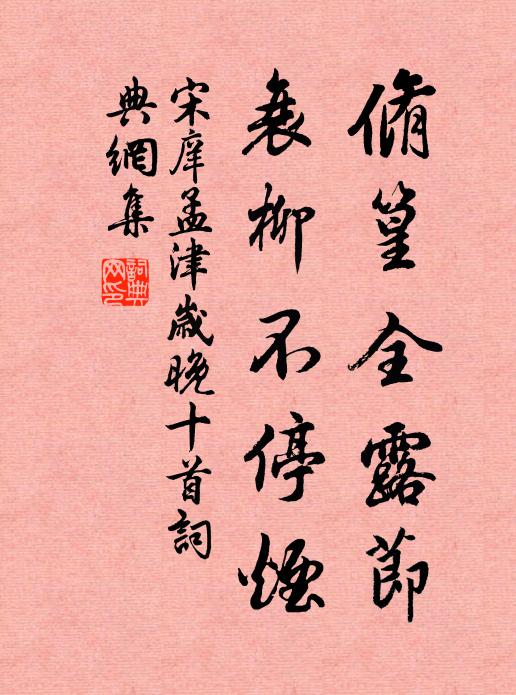 脩篁全露節
衰柳不停煙
宋庠孟津歲晚十首詞
典網集
詞典
网印